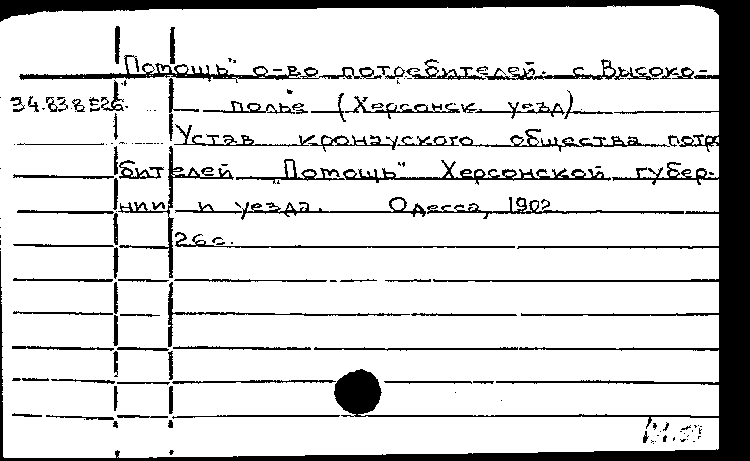 "Помощь" о-во потребителей. с. Высоко-
34.83.8526. полье (Херсонск. уезд)
Устав кронауского общества потре
бителей "Помощь" Херсонской губер-
нии и уезда. Одесса, 1902.
26 с.